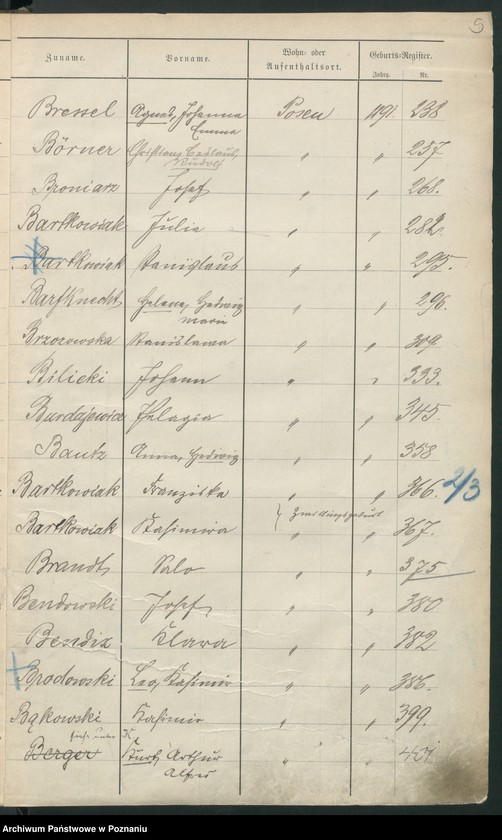 5
Zuname. Vorname. Wohn- oder Aufenthaltsort. Geburts-Register.
Jahrg. Nr.
Bressel Agnes, Johanna Emma Posen 1891. 238
Börner Christian Rudolf " " 257
Broniarz Josef " " 268.
Bartkowiak Julie " " 282.
Bartkowiak Stanislaus " " 295.
Barfknecht Helene, Hedwig Marie " " 296.
Brzozowska Stanislawa " " 309
Bilicki Johann " " 333.
Burdajewicz Pelagia " " 345.
Bautz Anna, Hedwig " " 358
Bartkowiak Franziska " " 366. 2/3
Zwillingsgeburt
Bartkowiak Kasimira " " 367.
Brandt Salo " " 375
Bendowski Josef " " 380
Bendix Klara " " 382
Brodowski Leo, Kasimir " " 386.
Bąkowski Kasimir " " 399.
siehe unter K
Berger Kurt, Arthur Alfred " "
Archiwum Państwowe w Poznaniu